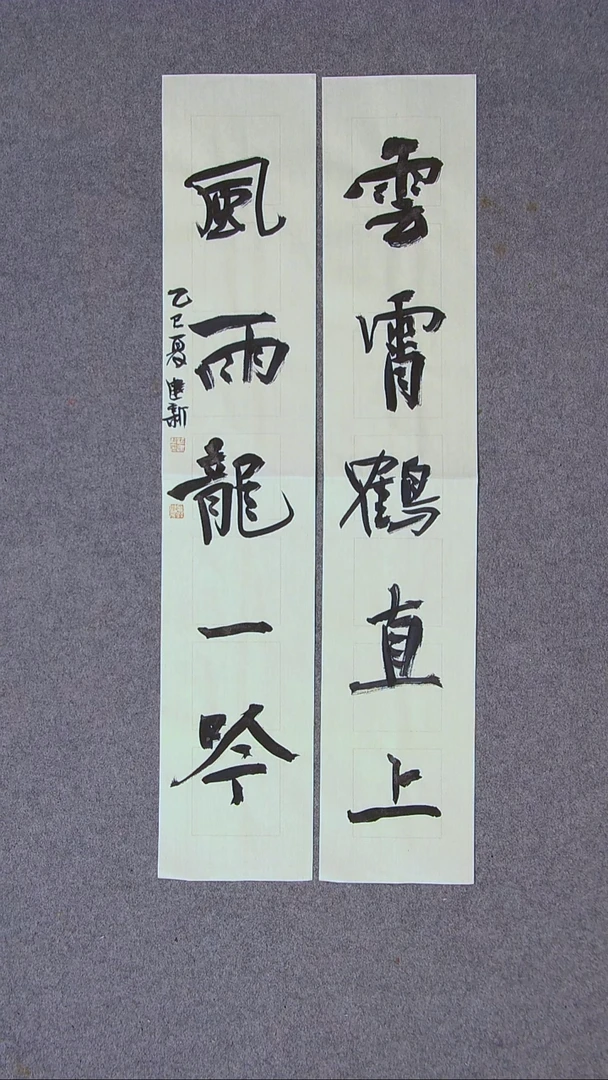 雲霄鶴直上
風雨龍一吟
乙巳夏建新